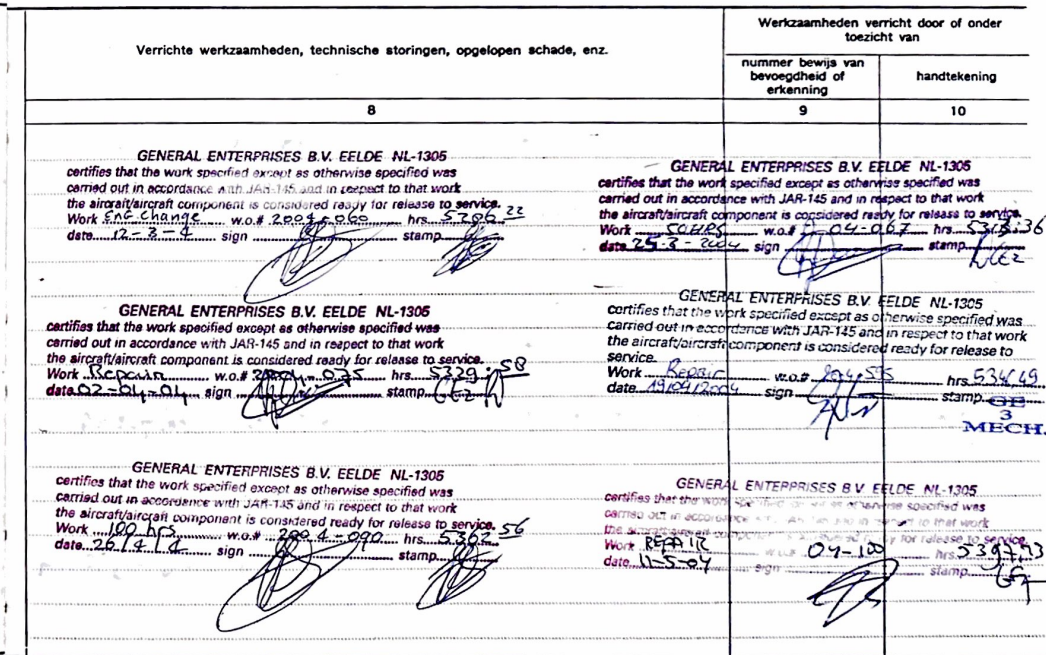 Verrichte werkzaamheden, technische storingen, opgelopen schade, enz.
Werkzaamheden verricht door of onder
toezicht van
nummer bewijs van
bevoegdheid of
erkenning
handtekening
8
9
10
GENERAL ENTERPRISES B.V. EELDE NL-1305
certifies that the work specified except as otherwise specified was
carried out in accordance with JAR-145 and in respect to that work
the aircraft/aircraft component is considered ready for release to service.
Work Eng. change w.o.# 2004-060 hrs. 5286 22
date 12-3-4 sign stamp
GENERAL ENTERPRISES B.V. EELDE NL-1305
certifies that the work specified except as otherwise specified was
carried out in accordance with JAR-145 and in respect to that work
the aircraft/aircraft component is considered ready for release to service.
Work 50HRS w.o.# 04-067 hrs. 5313:36
date 25-3-2004 sign stamp
GENERAL ENTERPRISES B.V. EELDE NL-1305
certifies that the work specified except as otherwise specified was
carried out in accordance with JAR-145 and in respect to that work
the aircraft/aircraft component is considered ready for release to service.
Work Repair w.o.# 2004-075 hrs. 5329:58
date 02-04-04 sign stamp
GENERAL ENTERPRISES B.V. EELDE NL-1305
certifies that the work specified except as otherwise specified was
carried out in accordance with JAR-145 and in respect to that work
the aircraft/aircraft component is considered ready for release to
service.
Work Repair w.o.# hrs.
date 19/04/2004 sign stamp GE
3
MECH.
GENERAL ENTERPRISES B.V. EELDE NL-1305
certifies that the work specified except as otherwise specified was
carried out in accordance with JAR-145 and in respect to that work
the aircraft/aircraft component is considered ready for release to service.
Work 100 hrs w.o.# 2004-090 hrs. 5362 56
date 26/4/4 sign stamp
GENERAL ENTERPRISES B.V. EELDE NL-1305
certifies that the work specified except as otherwise specified was
carried out in accordance to that work
the aircraft/aircraft ready for release to service.
Work REPAIR w.o.# 04-100 hrs.
date 11-5-04 sign stamp